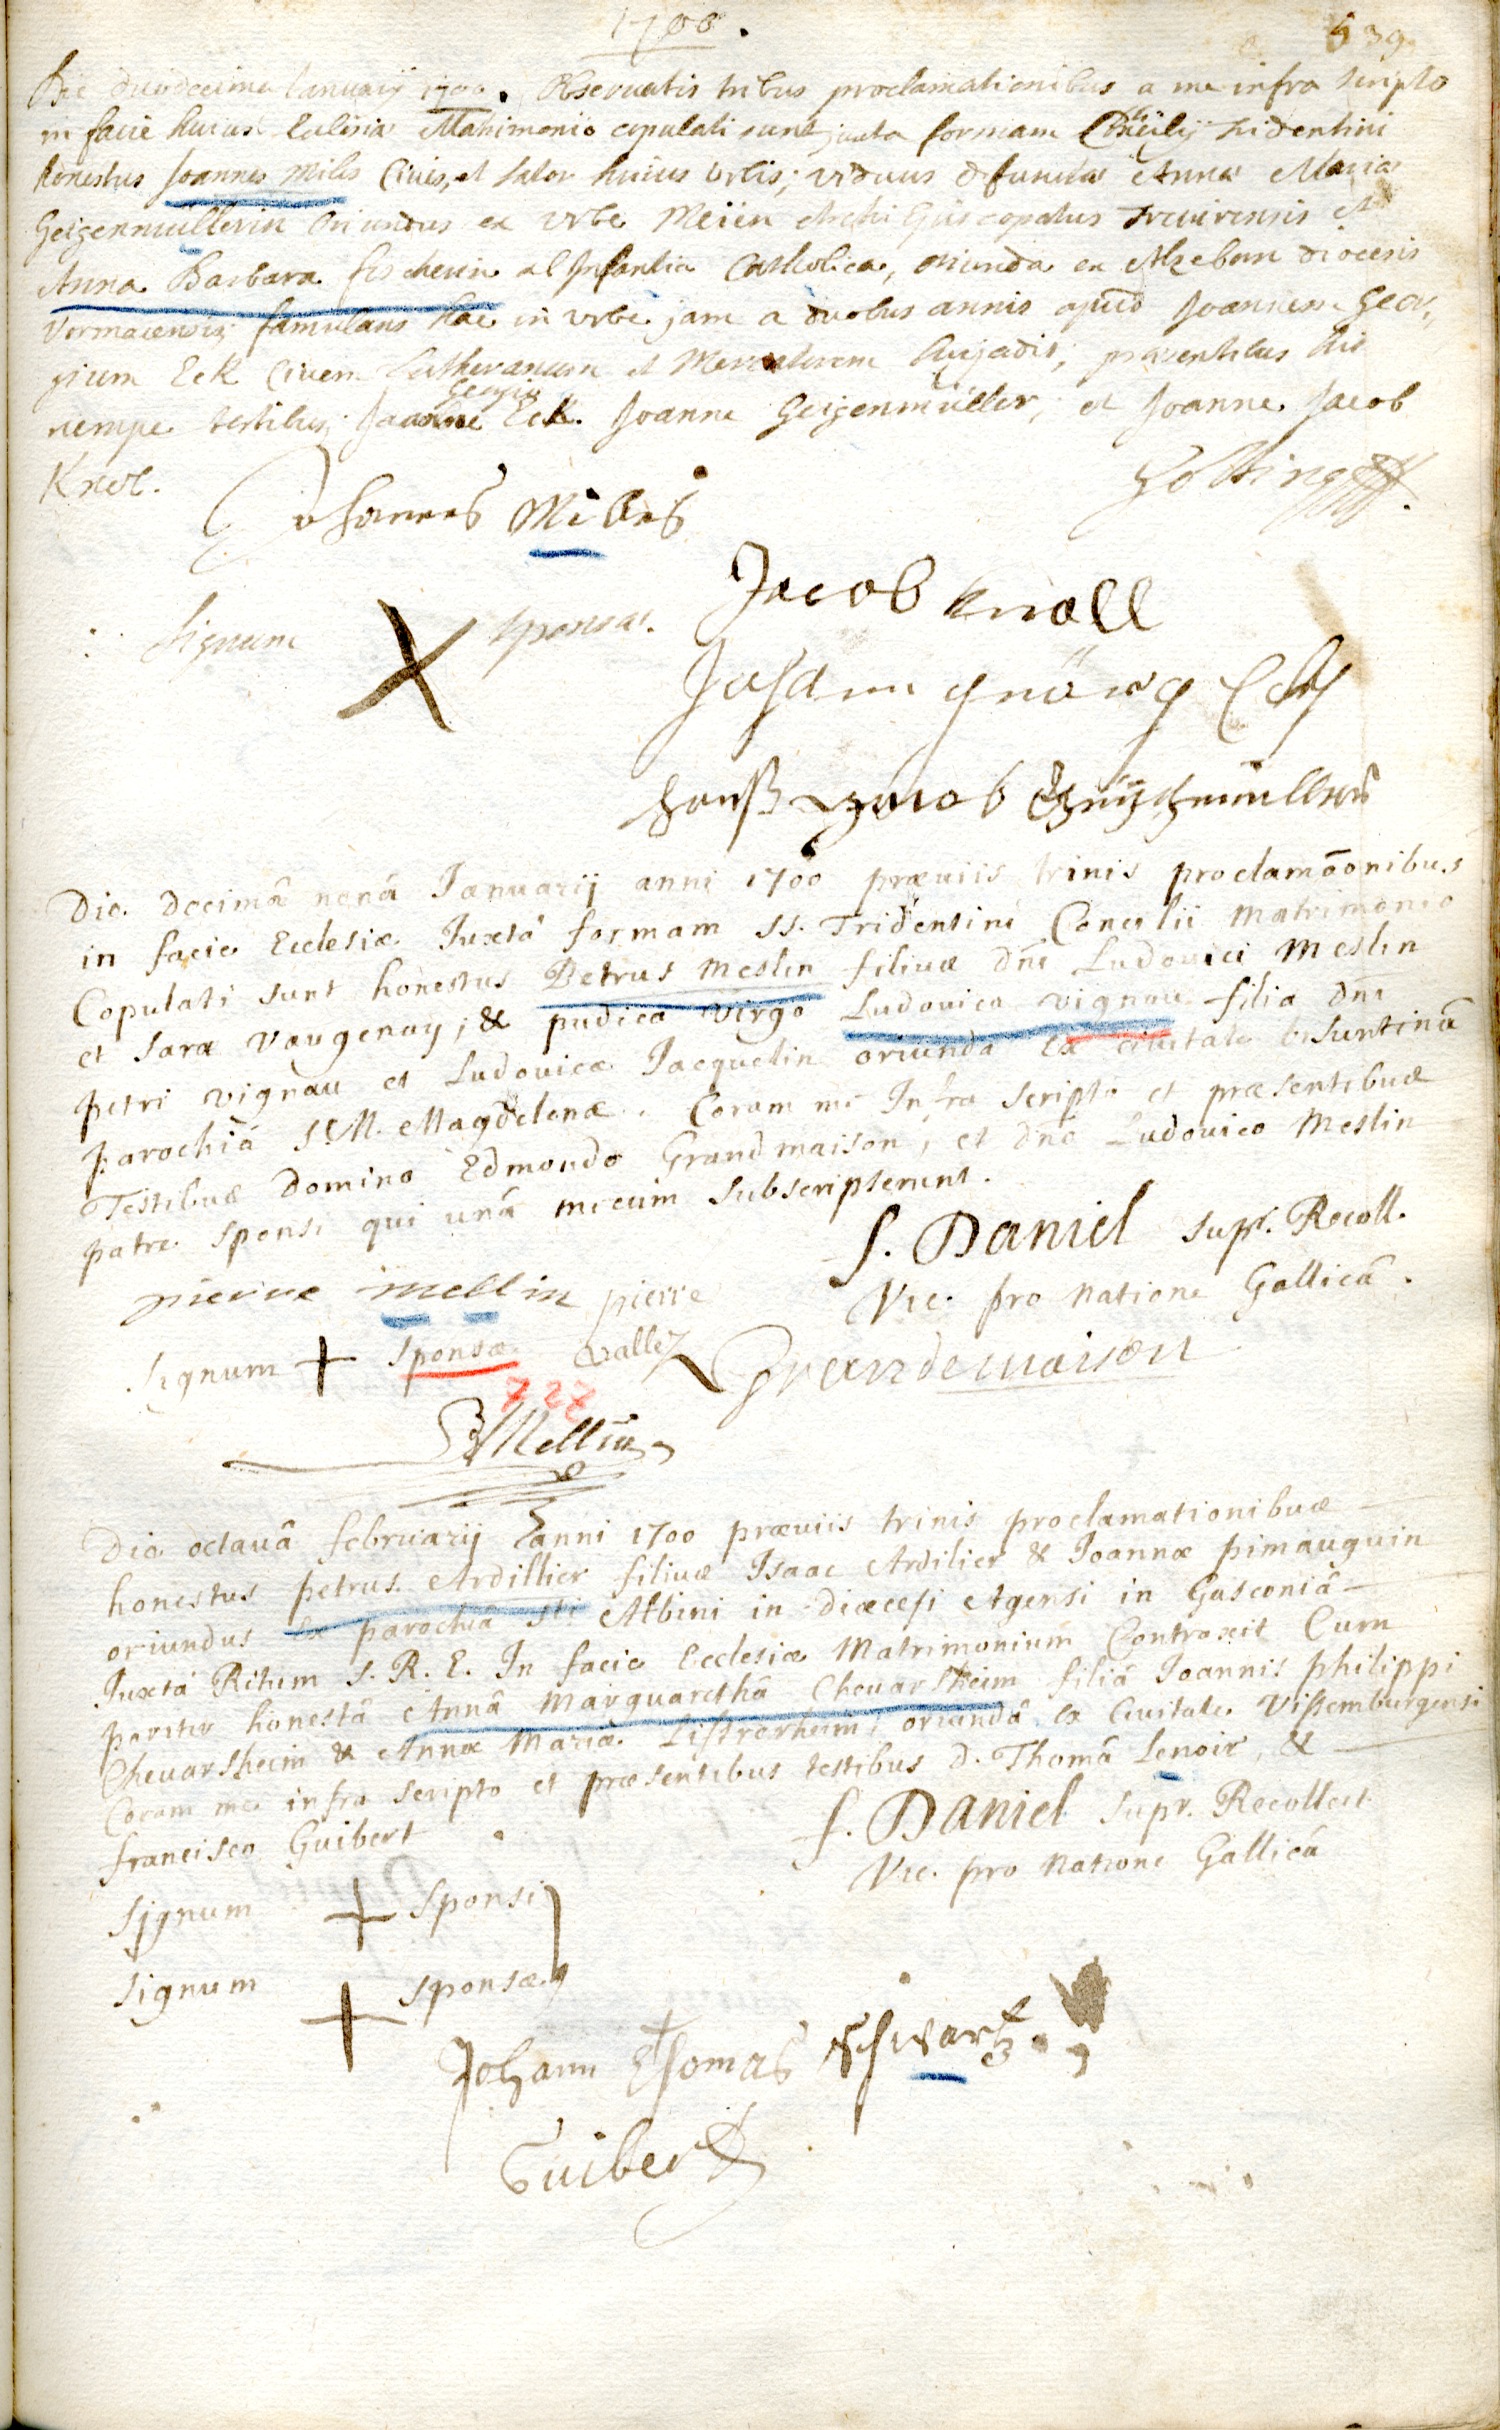 1700.
539
Die duodecima Januarij 1700. Observatis tribus proclamationibus a me infra scripto
in facie huius Eclesiæ Matrimonio copulati sunt juxta formam Concilij tridentini
honestus Joannes Miles Civis, et sator huius urbis; viduus defunctæ Annæ Mariæ
Geigenmüllerin Oriundus ex urbe Meiien Archi Episcopatus Trevirensis et
Anna Barbara fischerin ab Infantia Catholica, oriunda ex diocesis
Vormaciensis famulans hac in urbe jam a duobus annis apud Joannem Geor,
gium Eck Civem Lutheranum et Mercatorem præsentibus hic
nempe testibus Joanne Georgio Eck. Joanne Geigenmüller, et Joanne Jacob
Knol.
Johannes Milles
Signum X sponsæ.
Jacob knoll
Johann Eck
Hanß Jacob
Die decimâ nonâ Januarij anni 1700 præuiis trinis proclamõonibus
in facie Ecclesiæ Juxtà formam SS. Tridentini Concilii Matrimonio
Copulati sunt honestus Petrus Meslin filius dni Ludouici Meslin
et Saræ Vaugenay, & pudica Virgo Ludouica vignau filia dni
petri vignau et Ludouicæ Jacquelin oriunda ex ciuitate bisuntinâ
parochiâ Magdelenæ. Coram me Infra scripto et præsentibus
Testibus Domino Edmondo Grandmaison, et dno Ludouico Meslin
patre sponsi qui unâ mecum subscripserunt.
f. Daniel supr. Recoll.
Vic. pro natione Gallicâ.
pierre mellin
pierre
vallez
Signum + Sponsæ
Grandemaison
727
Mellin
Die octauâ februarij anni 1700 præuiis trinis proclamationibus
honestus petrus Ardillier filius Isaac Ardilier & Joannæ pimauguin
oriundus ex parochiâ sti Albini in diœcesi Agensi in Gasconiâ
Juxtà Ritum S. R. E. In facie Ecclesiæ Matrimonium Contraxit Cum
pariter honestâ Annâ Marguarethâ Cheuarsheim filiâ Joannis philippi
Cheuarsheim & Annæ Mariæ oriundâ ex Ciuitate Vissemburgensi
Coram me infra scripto et præsentibus testibus d. Thomâ Lenoir, &
francisco Guibert
f. Daniel supr. Recollect.
Vic. pro natione Gallicâ
Signum + Sponsi
Signum + Sponsæ
Johann Thomas Schwartz
Guibert